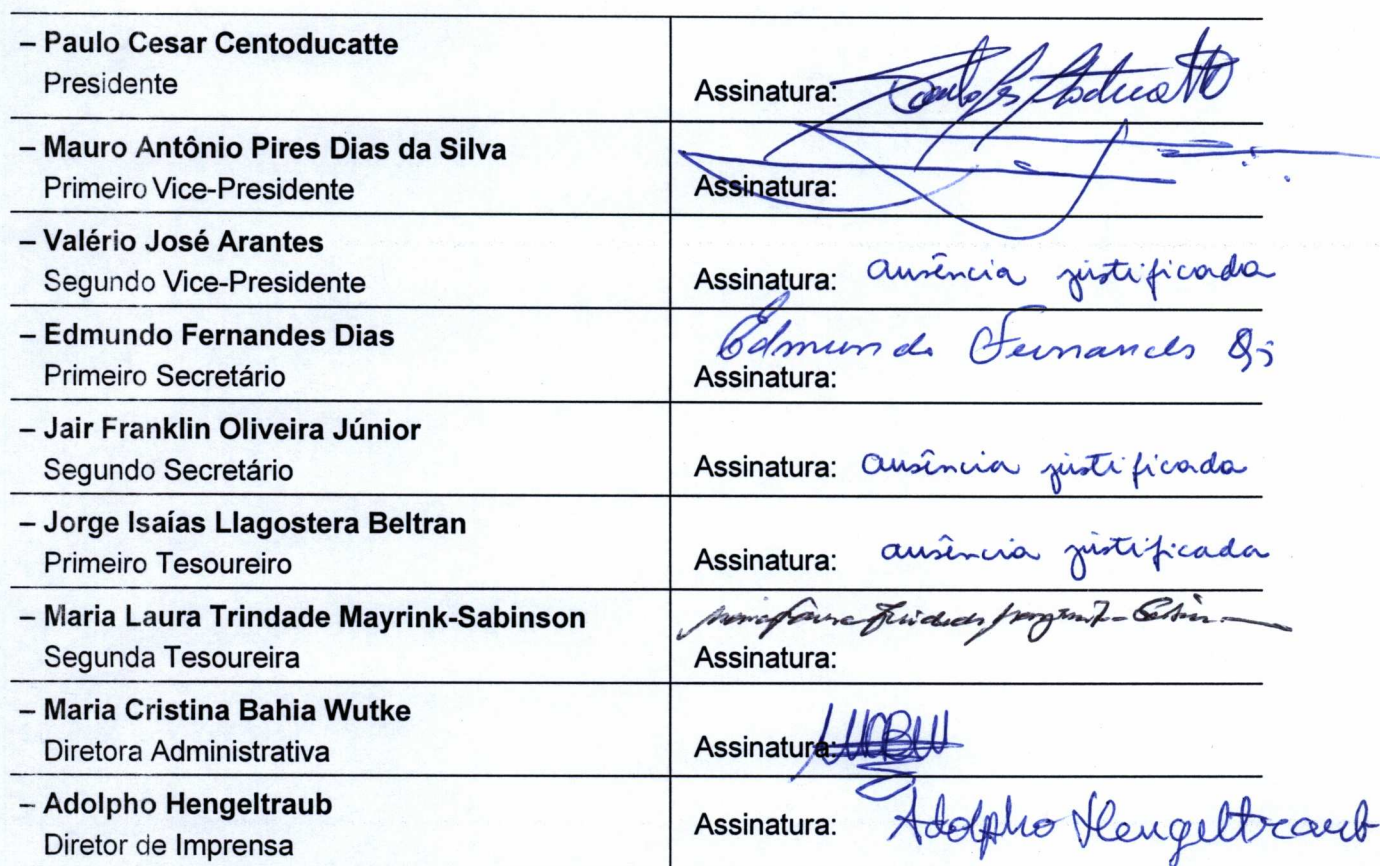 – Paulo Cesar Centoducatte
Presidente
Assinatura:
– Mauro Antônio Pires Dias da Silva
Primeiro Vice-Presidente
Assinatura:
– Valério José Arantes
Segundo Vice-Presidente
Assinatura: ausência justificada
– Edmundo Fernandes Dias
Primeiro Secretário
Edmundo Fernandes
Assinatura:
– Jair Franklin Oliveira Júnior
Segundo Secretário
Assinatura: ausência justificada
– Jorge Isaías Llagostera Beltran
Primeiro Tesoureiro
Assinatura: ausência justificada
– Maria Laura Trindade Mayrink-Sabinson
Segunda Tesoureira
Assinatura:
– Maria Cristina Bahia Wutke
Diretora Administrativa
Assinatura:
– Adolpho Hengeltraub
Diretor de Imprensa
Assinatura: Adolpho Hengeltraub